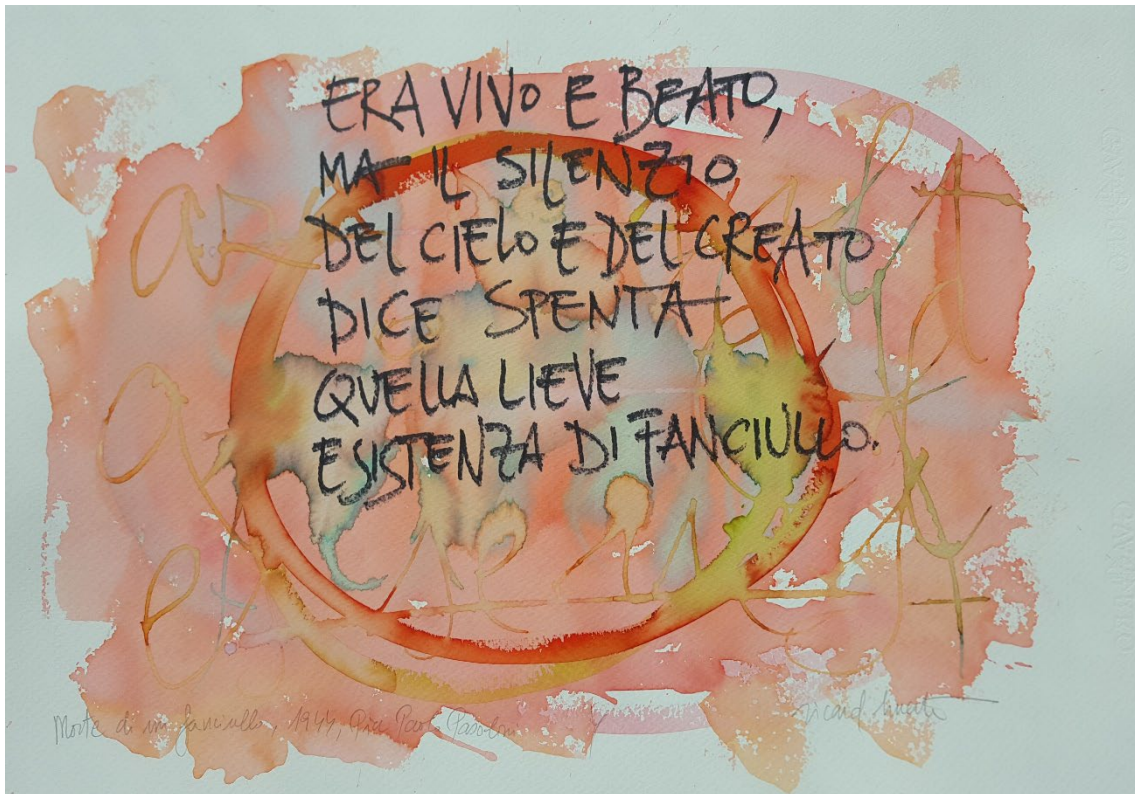 ERA VIVO E BEATO,
MA IL SILENZIO
DEL CIELO E DEL CREATO
DICE SPENTA
QUELLA LIEVE
ESISTENZA DI FANCIULLO.
Morte di un fanciullo, 1944, Pier Paolo Pasolini